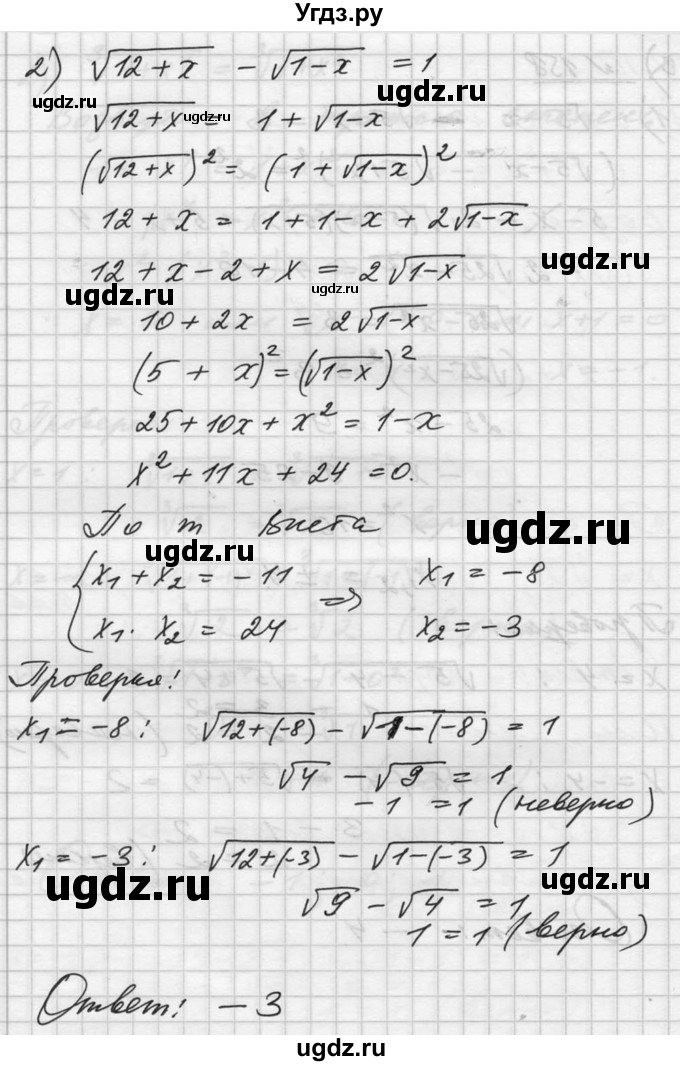 Угдз.ру
2) √(12 + x) - √(1-x) = 1
ugdz.ru ugdz.ru ugdz.ru
√(12+x) = 1 + √(1-x)
(√(12+x))² = (1 + √(1-x))²
12 + x = 1 + 1 - x + 2√(1-x)
ugdz.ru
12 + x - 2 + x = 2√(1-x)
ugdz.ru ugdz.ru
10 + 2x = 2√(1-x)
(5 + x)² = (√(1-x))²
25 + 10x + x² = 1-x
x² + 11x + 24 = 0.
По т Виета
ugdz.ru ugdz.ru
{ x₁ + x₂ = -11 x₁ = -8
⇒
x₁ · x₂ = 24 x₂ = -3
Проверка!
x₁ = -8 : √(12+(-8)) - √(1-(-8)) = 1
√4 - √9 = 1
-1 = 1 (неверно)
x₁ = -3 : √(12+(-3)) - √(1-(-3)) = 1
ugdz.ru ugdz.ru
√9 - √4 = 1
1 = 1 (верно)
Ответ! -3
ugdz.ru